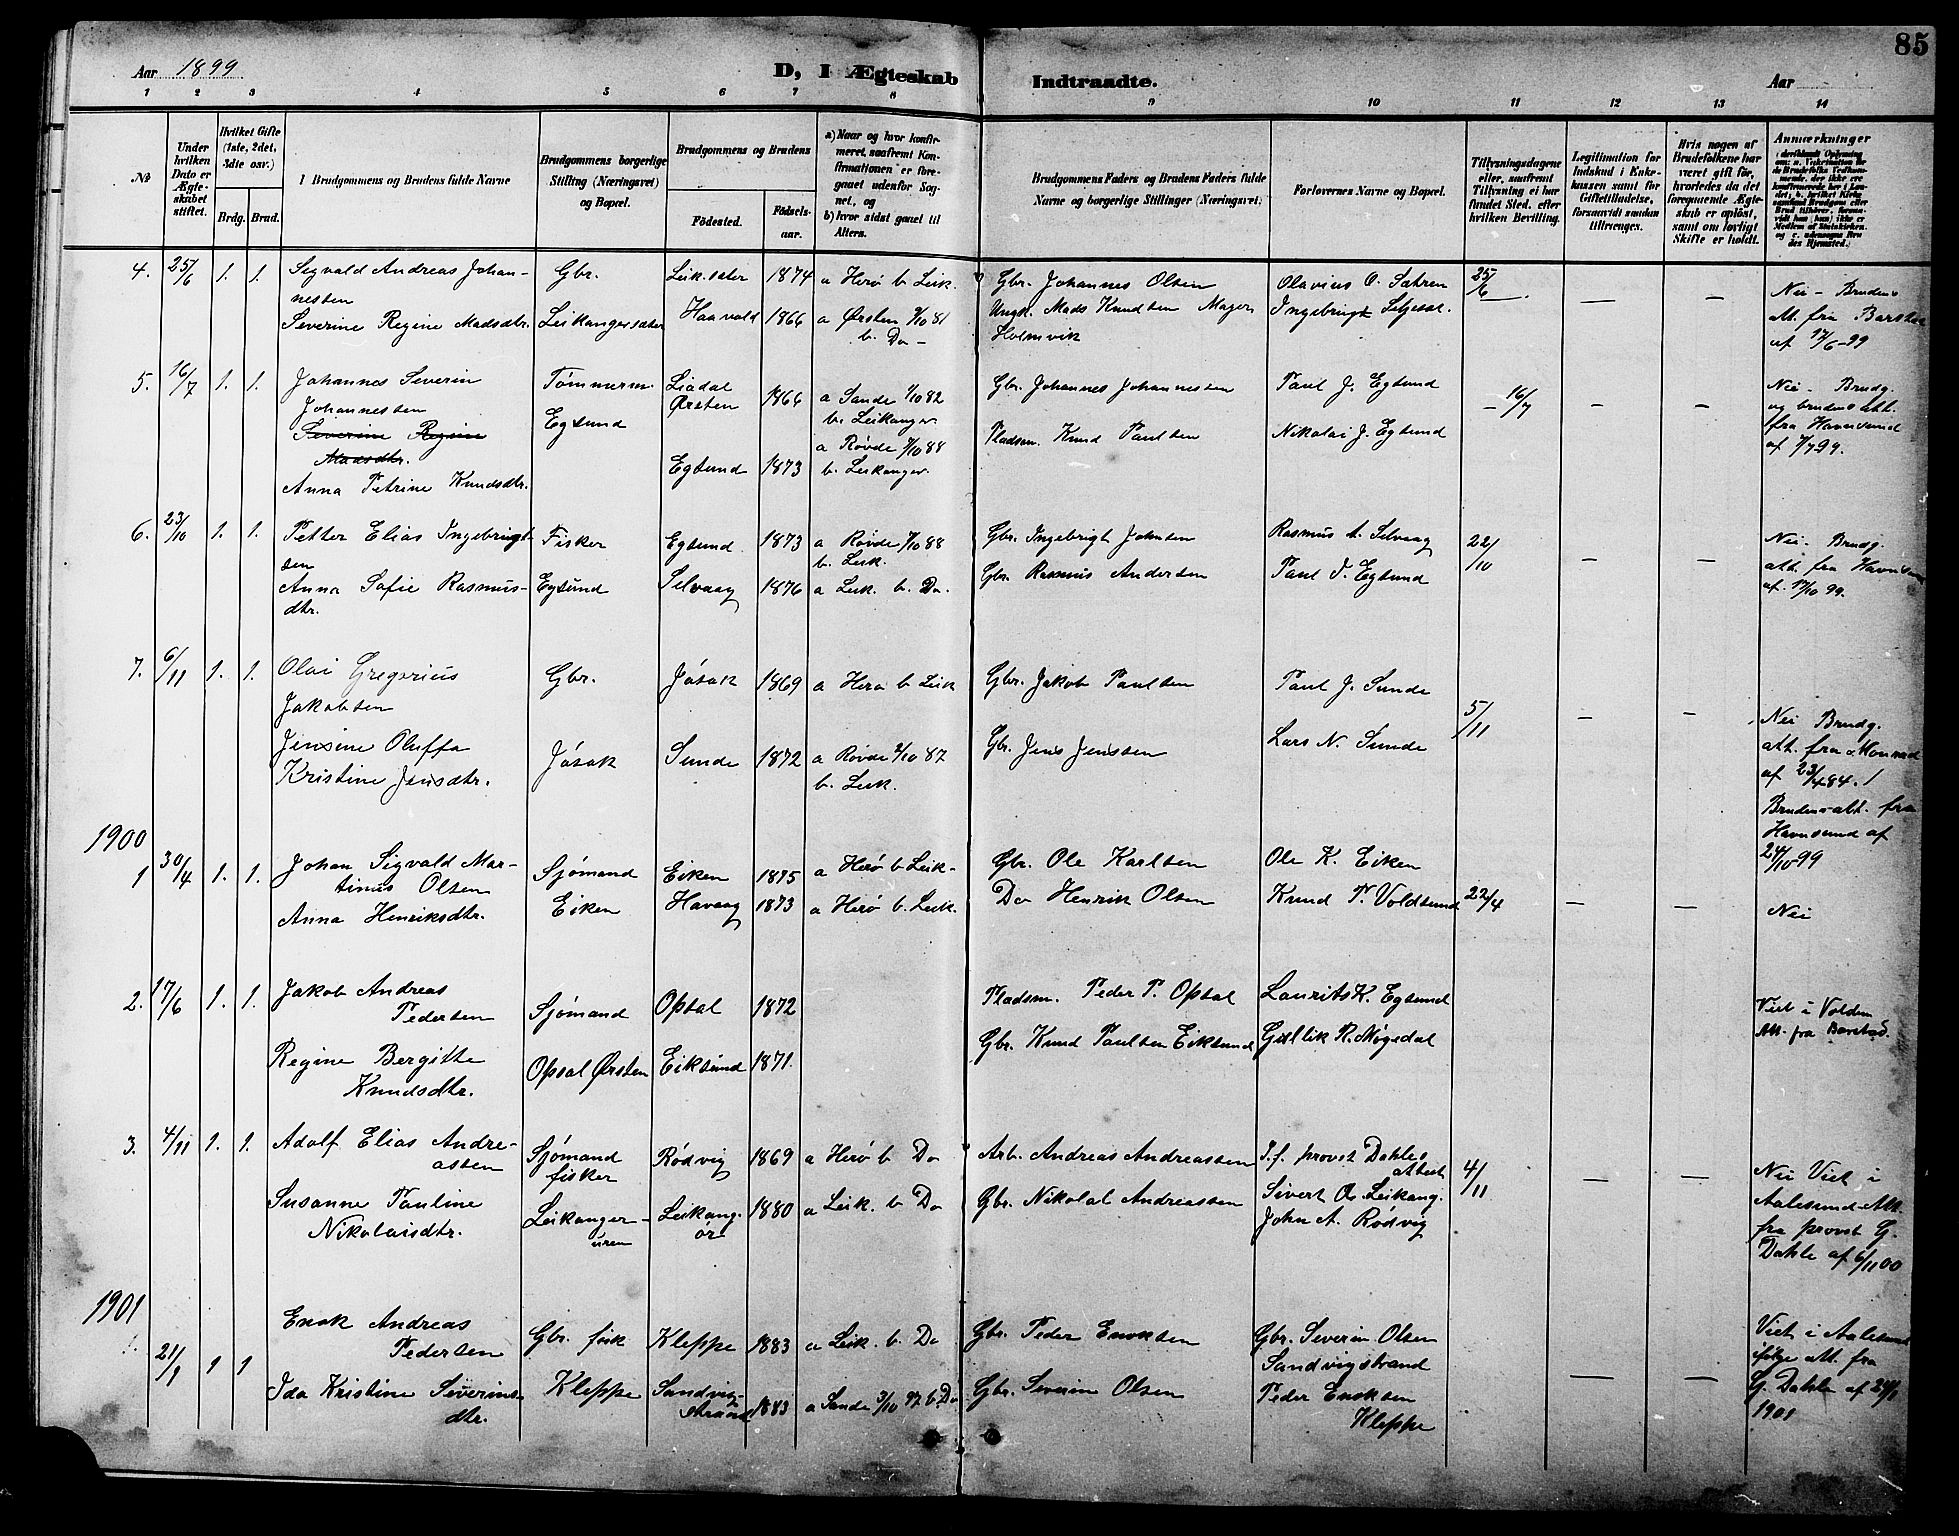 85
Aar 1899
D, I Ægteskab Indtraadte.
Aar
1 2 3 4 5 6 7 8 9 10 11 12 13 14
№
Under hvilken Dato er Ægteskabet stiftet.
Hvilket Gifte (1ste, 2det, 3die osv.)
Brdg. Brud.
Brudgommens og Brudens fulde Navne
Brudgommens borgerlige Stilling (Næringsvei) og Bopæl.
Brudgommens og Brudens
Födested.
Födsels-aar.
a) Naar og hvor konfirmeret, saafremt Konfirmationen er foregaaet udenfor Sognet, og
b) hvor sidst gaaet til Alters.
Brudgommens Faders og Brudens Faders fulde Navne og borgerlige Stillinger (Næringsvei)
Forlovernes Navne og Bopæl.
Tillysningsdagene eller, saafremt Tillysning ei har fundet Sted, efter hvilken Bevilling.
Legitimation for Indskud i Enkekassen samt for Giftetilladelse, forsaavidt saadan tiltrænges.
Hvis nogen af Brudefolkene har været gift før, hvorledes da det foregaaende Ægteskab er oplöst, samt om lovligt Skifte er holdt.
Anmærkninger
4. 25/6 1. 1. Sigvald Andreas Johan-
nessen
Gbr. Leik.sæter 1874 a Herø b. Leik. Gbr. Johannes Olsen Olavius O. Sætren 25/6 — —
Severine Regine Madsdtr. Leikangersæter Haavold 1866 a Ørsten 1/10 81
b. Do -
Ungk. Mads Knudsen Mager
Holmvik
Ingebrigt
Nei - Brudens
att. fra Barstad
af 17/6-99
5. 16/7 1. 1. Johannes Severin
Johannessen
Tømmerm. Liadal
Ørsten 1866 a Sande 1/10 82
b. Leikanger.
Gbr. Johannes Johannessen Paul J. Egsund - 16/7 — —
Severine Regine
Madsdtr.
Egsund
Anna Petrine Knudsdtr. Egsund 1873 a Røvde 7/10 88
b. Leikanger.
Pladsm. Knud Paulsen Nikolai J. Egsund
Nei - Brudg.
og brudens att.
fra Havnsund
af 7/7 99.
6. 23/10 1. 1. Petter Elias Ingebrigt-
sen
Fisker Egsund 1873 a Røvde 7/10 88
b. Leik.
Gbr. Ingebrigt Johnsen Rasmus A. Selvaag 22/10 — —
Anna Sofie Rasmus-
dtr.
Egsund Selvaag 1876 a Leik. b. Do. Gbr. Rasmus Andersen Paul J. Egsund
Nei - Brudg.
att. fra Havnsund
af. 17/10 99.
7. 6/11 1. 1. Olai Gregorius
Jakobsen
Gbr. Jøsok 1869 a Herø b Leik Gbr. Jakob Paulsen Paul J. Sunde 5/11 — —
Jensine Oluffa
Kristine Jensdtr.
Jøsok Sunde 1872 a Røvde 2/10 87
b. Leik.
Gbr. Jens Jenssen Lars N. Sunde
Nei Brudg.
att. fra
af 23/4 84.
Brudens att. fra
Havnsund af
24/10 99
1900
1 30/4 1. 1. Johan Sigvald Mar-
tinus Olsen
Sjømand Eiken 1875 a Herø b Leik - Gbr. Ole Karlsen Ole K. Eiken
Anna Henriksdtr. Eiken Havaag 1873 a Herø b. Leik. Do Henrik Olsen Knud P. Voldsund 22/4 — — Nei
2. 17/6 1. 1. Jakob Andreas
Pedersen
Sjømand Opsal 1872 Pladsm. Peder P. Opsal Laurits K. Egsund
Regine Bergitte
Knudsdtr.
Opsal Ørsten Eiksund 1871. Gbr. Knud Paulsen Eiksund Gullik R. Møgedal
Viet i Volden
Att. fra Barstad.
3. 4/11 1. 1. Adolf Elias Andre-
assen
Sjømand
fisker
Rødvig 1869 a Herø b Do Arb. Andreas Andreassen I.f. provst Dahles
attest
4/11 — —
Susanne Pauline
Nikolaisdtr.
Leikanger-
uren
Leikang.
ør
1880 a Leik. b. Do Gbr. Nikolai Andreassen Sivert O. Leikang.
John A. Rødvig
Nei Viet i
Aalesund-Att.
fra provst G.
Dahle af 6/11 00
1901
21/1 1 1 Enok Andreas
Pedersen
Gbr. fisk Kleppe 1883 a Leik. b. Do Gbr. Peder Enoksen Gbr. Severin Olsen
Sandvigstrand
Ida Kristine Severins-
dtr.
Kleppe Sandvig-
strand
1883 a Sande 3/10 97 b Do Gbr. Severin Olsen Peder Enoksen
Kleppe
— —
Viet i Aalesund
ifølge att. fra
G. Dahle af
1901